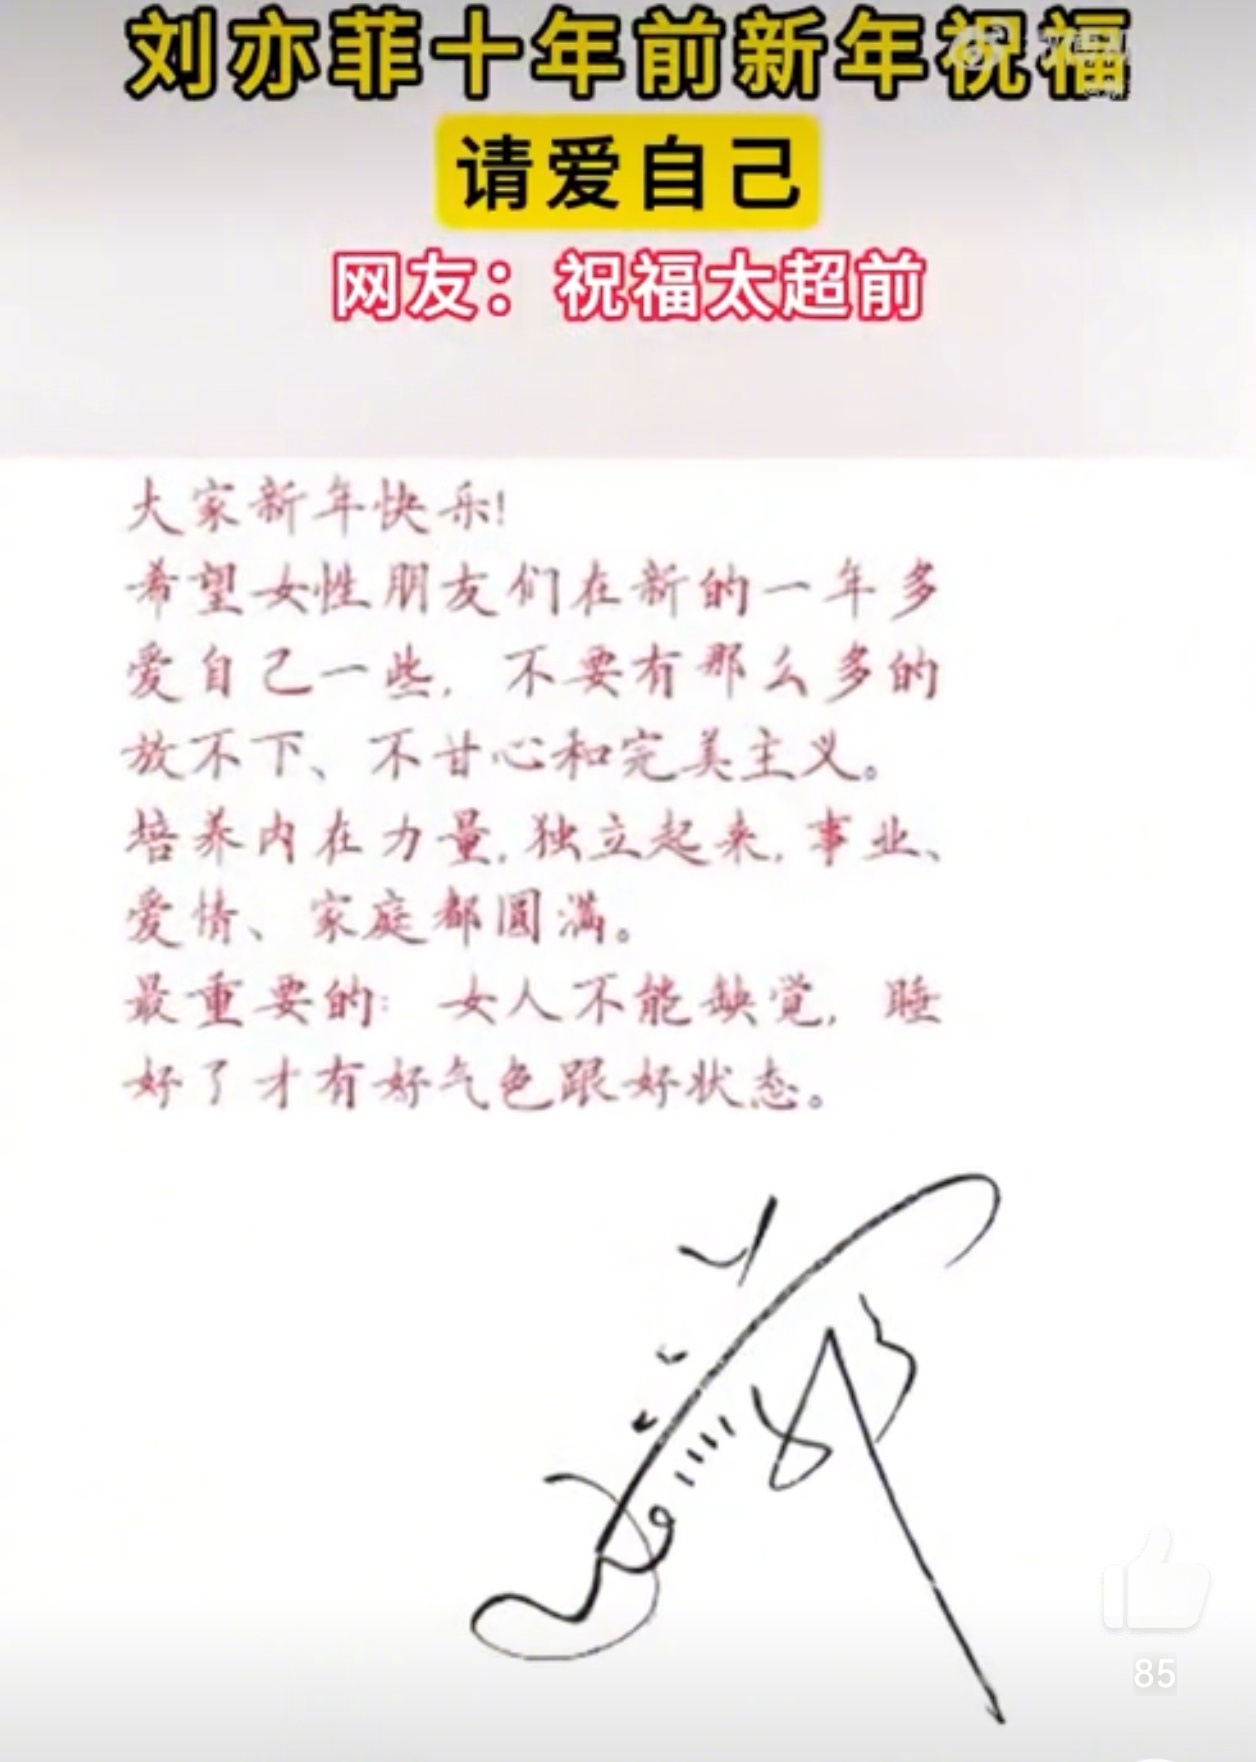 刘亦菲十年前新年祝福
请爱自己
网友：祝福太超前
大家新年快乐！
希望女性朋友们在新的一年多
爱自己一些，不要有那么多的
放不下、不甘心和完美主义。
培养内在力量，独立起来，事业、
爱情、家庭都圆满。
最重要的：女人不能缺觉，睡
好了才有好气色跟好状态。
85